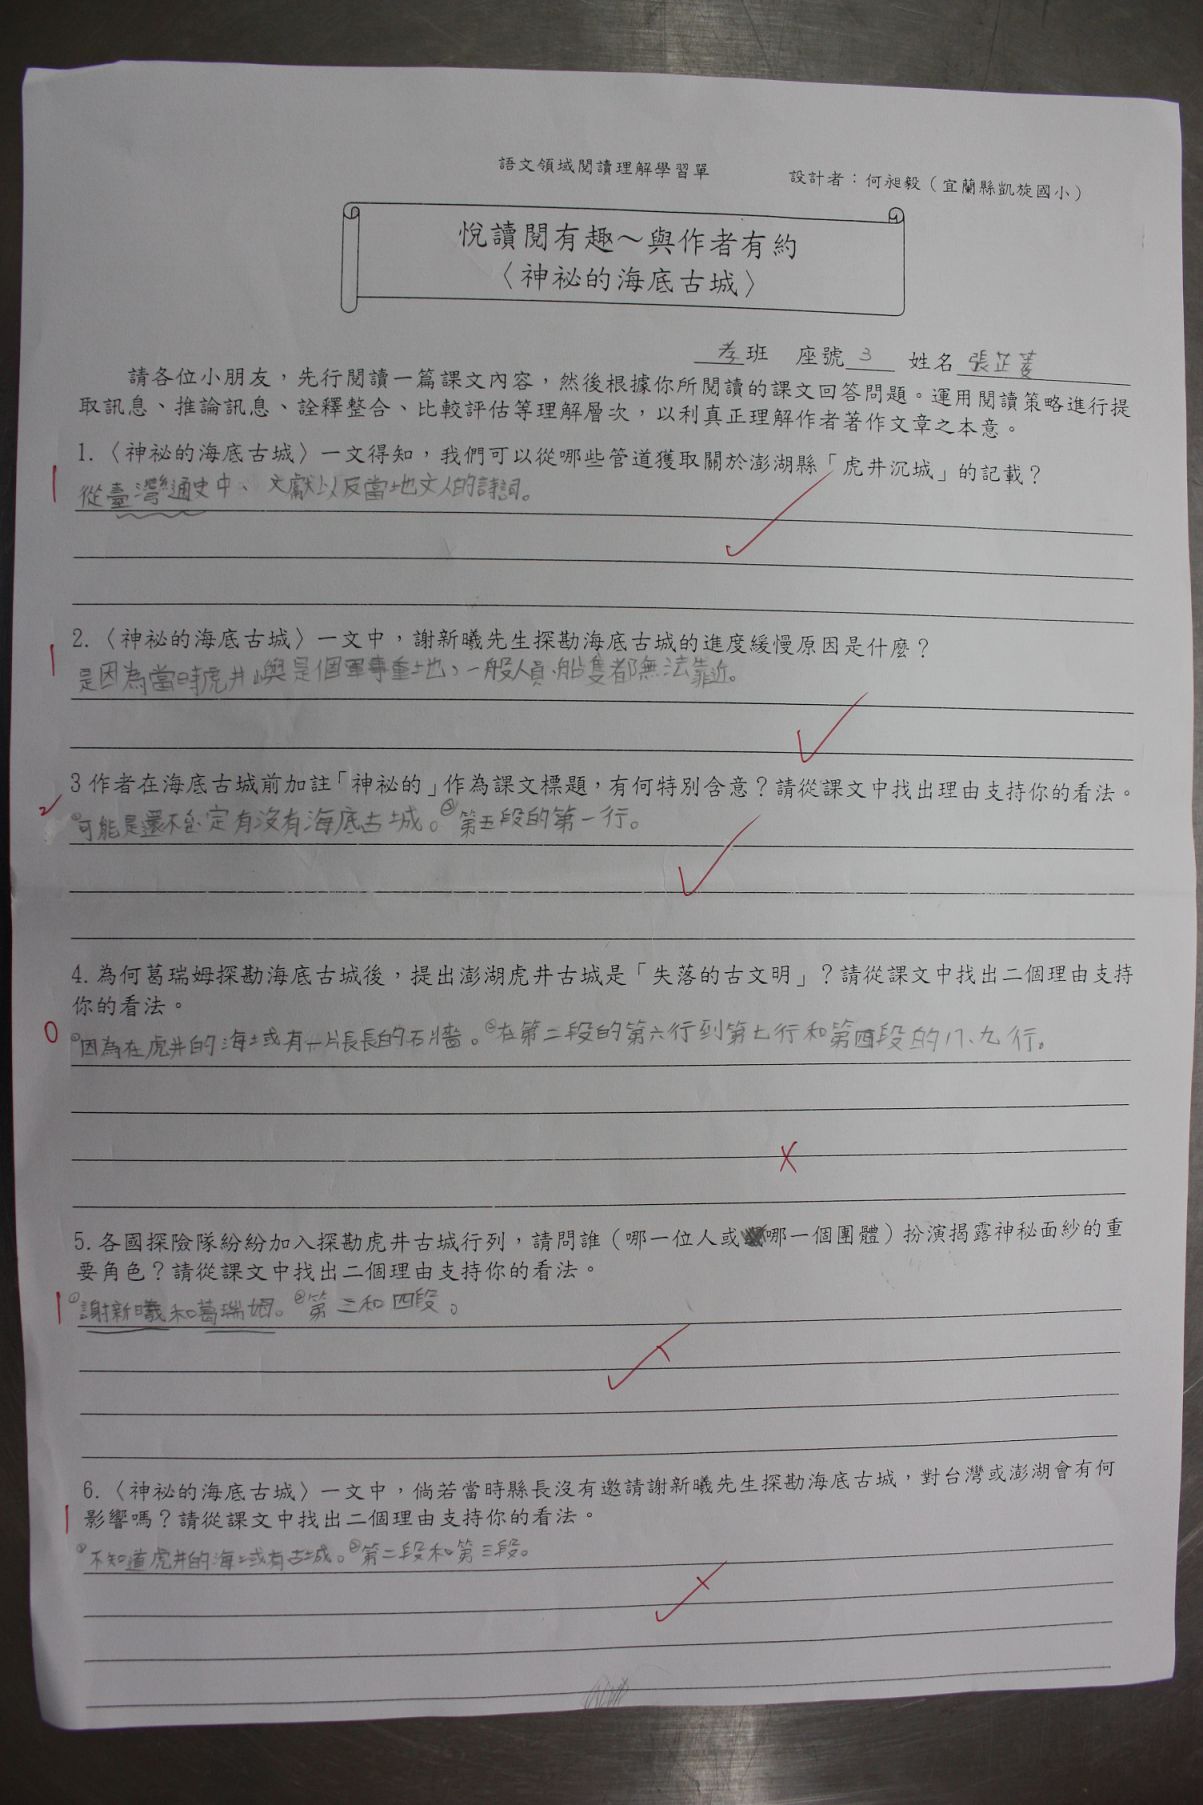 語文領域閱讀理解學習單
設計者：何昶毅（宜蘭縣凱旋國小）
悅讀閱有趣～與作者有約
〈神祕的海底古城〉
孝班 座號 3 姓名 張芷菱
請各位小朋友，先行閱讀一篇課文內容，然後根據你所閱讀的課文回答問題。運用閱讀策略進行提
取訊息、推論訊息、詮釋整合、比較評估等理解層次，以利真正理解作者著作文章之本意。
1.〈神祕的海底古城〉一文得知，我們可以從哪些管道獲取關於澎湖縣「虎井沉城」的記載？
1 從臺灣通史中、文獻以及當地文人的詩詞。
2.〈神祕的海底古城〉一文中，謝新曦先生探勘海底古城的進度緩慢原因是什麼？
1 是因為當時虎井嶼是個軍事重地，一般人員、船隻都無法靠近。
3 作者在海底古城前加註「神祕的」作為課文標題，有何特別含意？請從課文中找出理由支持你的看法。
2 ①可能是還不一定有沒有海底古城。②第五段的第一行。
4. 為何葛瑞姆探勘海底古城後，提出澎湖虎井古城是「失落的古文明」？請從課文中找出二個理由支持
你的看法。
0 ①因為在虎井的海域有一片長長的石牆。②在第二段的第六行到第七行和第四段的八、九行。
5. 各國探險隊紛紛加入探勘虎井古城行列，請問誰（哪一位人或哪一個團體）扮演揭露神秘面紗的重
要角色？請從課文中找出二個理由支持你的看法。
1 ①謝新曦和葛瑞姆。②第三和四段。
6.〈神祕的海底古城〉一文中，倘若當時縣長沒有邀請謝新曦先生探勘海底古城，對台灣或澎湖會有何
影響嗎？請從課文中找出二個理由支持你的看法。
1 ①不知道虎井的海域有古城。②第二段和第三段。